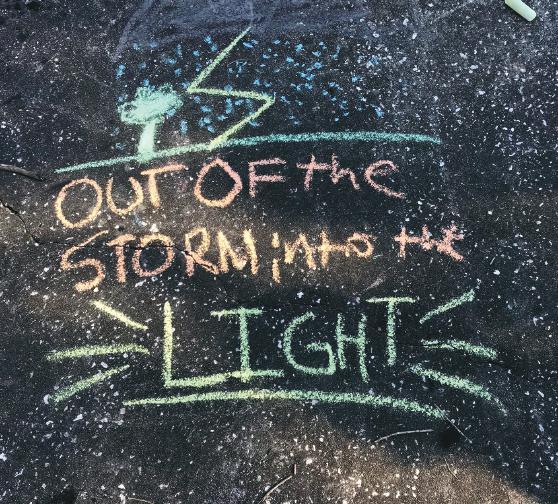 OUT OF the
STORM into the
LIGHT